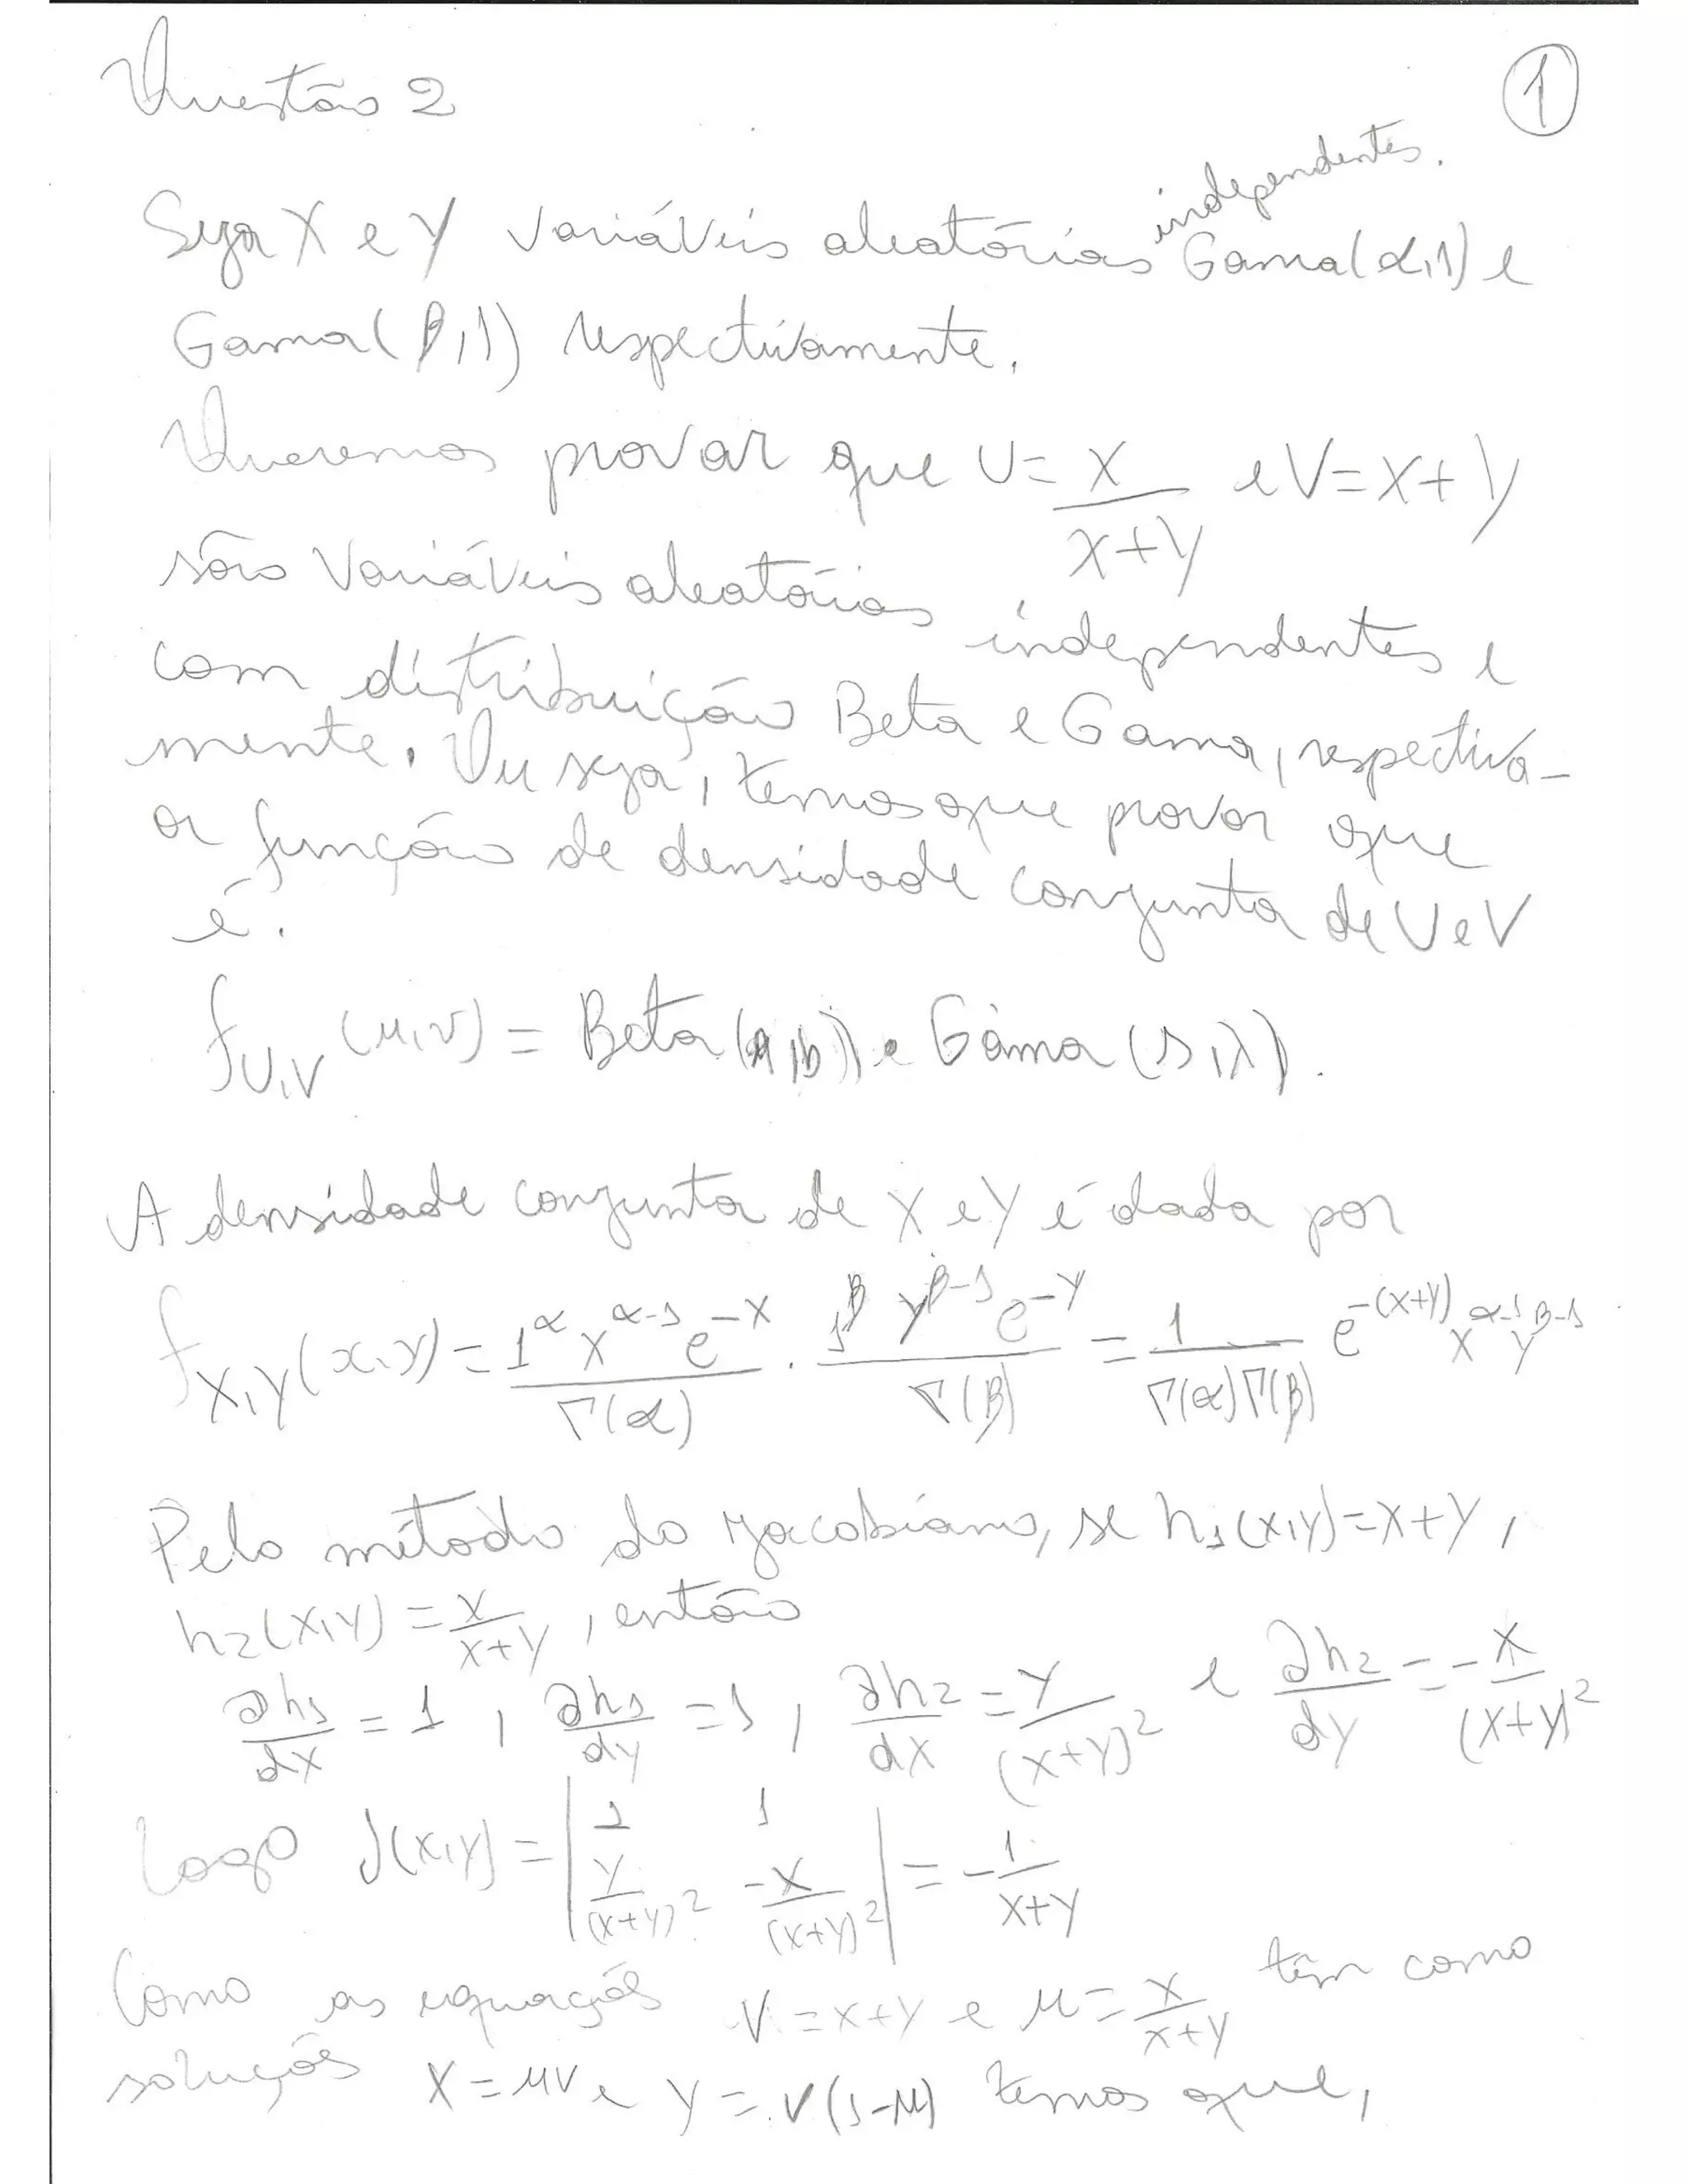 Questão 2
①
Seja X e Y variáveis aleatórias independentes. Gama(α,1) e
Gama(β,1) respectivamente.
Queremos provar que U = X/(X+Y) e V = X+Y
são variáveis aleatórias independentes e
com distribuição Beta e Gama, respectiva-
mente. Ou seja, temos que provar que
a função de densidade conjunta de U e V
é.
f_{U,V}(u,v) = Beta(a,b) • Gama(s,λ).
A densidade conjunta de X e Y é dada por
f_{X,Y}(x,y) = 1^α x^{α-1} e^{-x}/Γ(α) . 1^β y^{β-1} e^{-y}/Γ(β) = 1/(Γ(α)Γ(β)) e^{-(x+y)} x^{α-1} y^{β-1}.
Pelo método do jacobiano, se h₁(x,y) = x+y,
h₂(x,y) = x/(x+y), então
∂h₁/dx = 1, ∂h₁/dy = 1, ∂h₂/dx = y/(x+y)² e ∂h₂/dy = -x/(x+y)²
Logo J(x,y) = | 1 1 ; y/(x+y)² -x/(x+y)² | = -1/(x+y)
Como as equações V = x+y e u = x/(x+y) têm como
soluções x = uv e y = v(1-u) temos que,